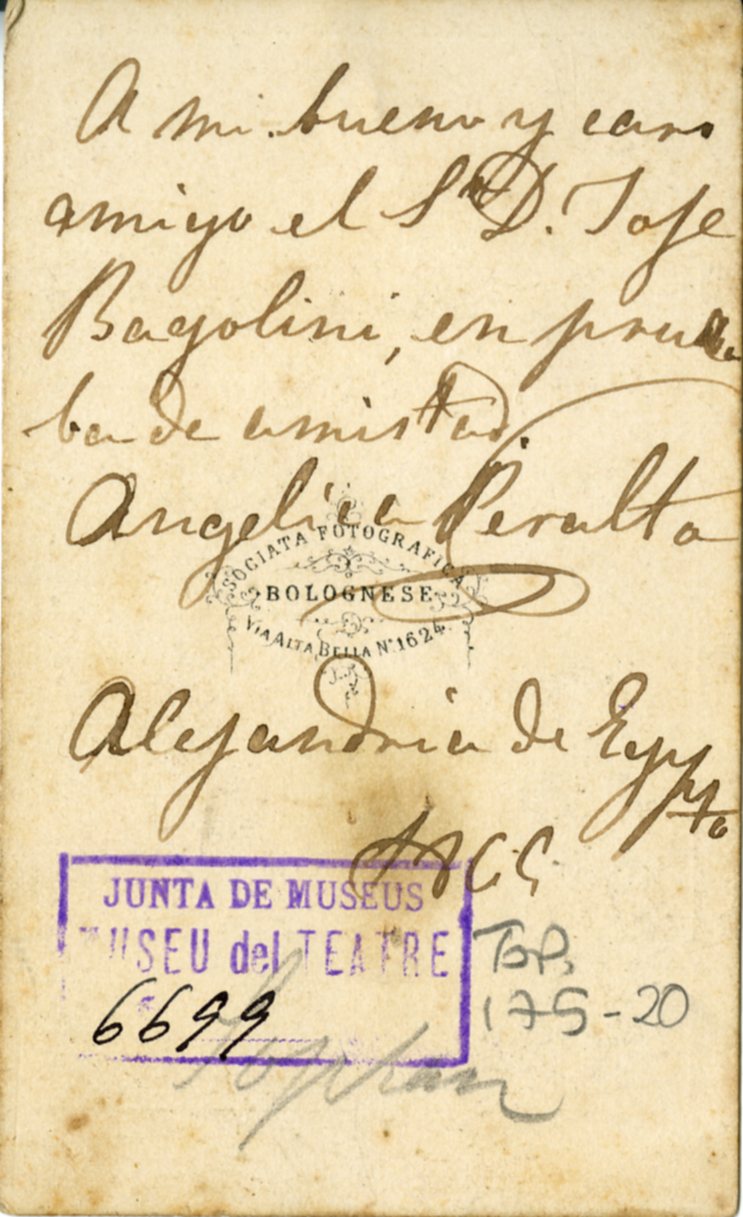 A mi bueno y caro
amigo el Sr. D. Jose
Bagolini, en prue
ba de amistad.
Angelica Peralta
SOCIATA FOTOGRAFICA
BOLOGNESE
VIA ALTA BELLA No. 1624
Alejandria de Egypto
JUNTA DE MUSEUS
MUSEU del TEATRE
6699
Top.
175-20